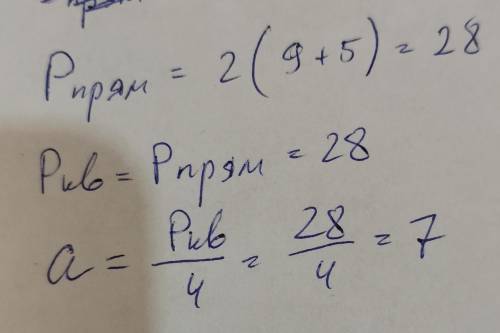 Pпрям = 2(9+5) = 28
Pкв = Pпрям = 28
a = Pкв/4 = 28/4 = 7